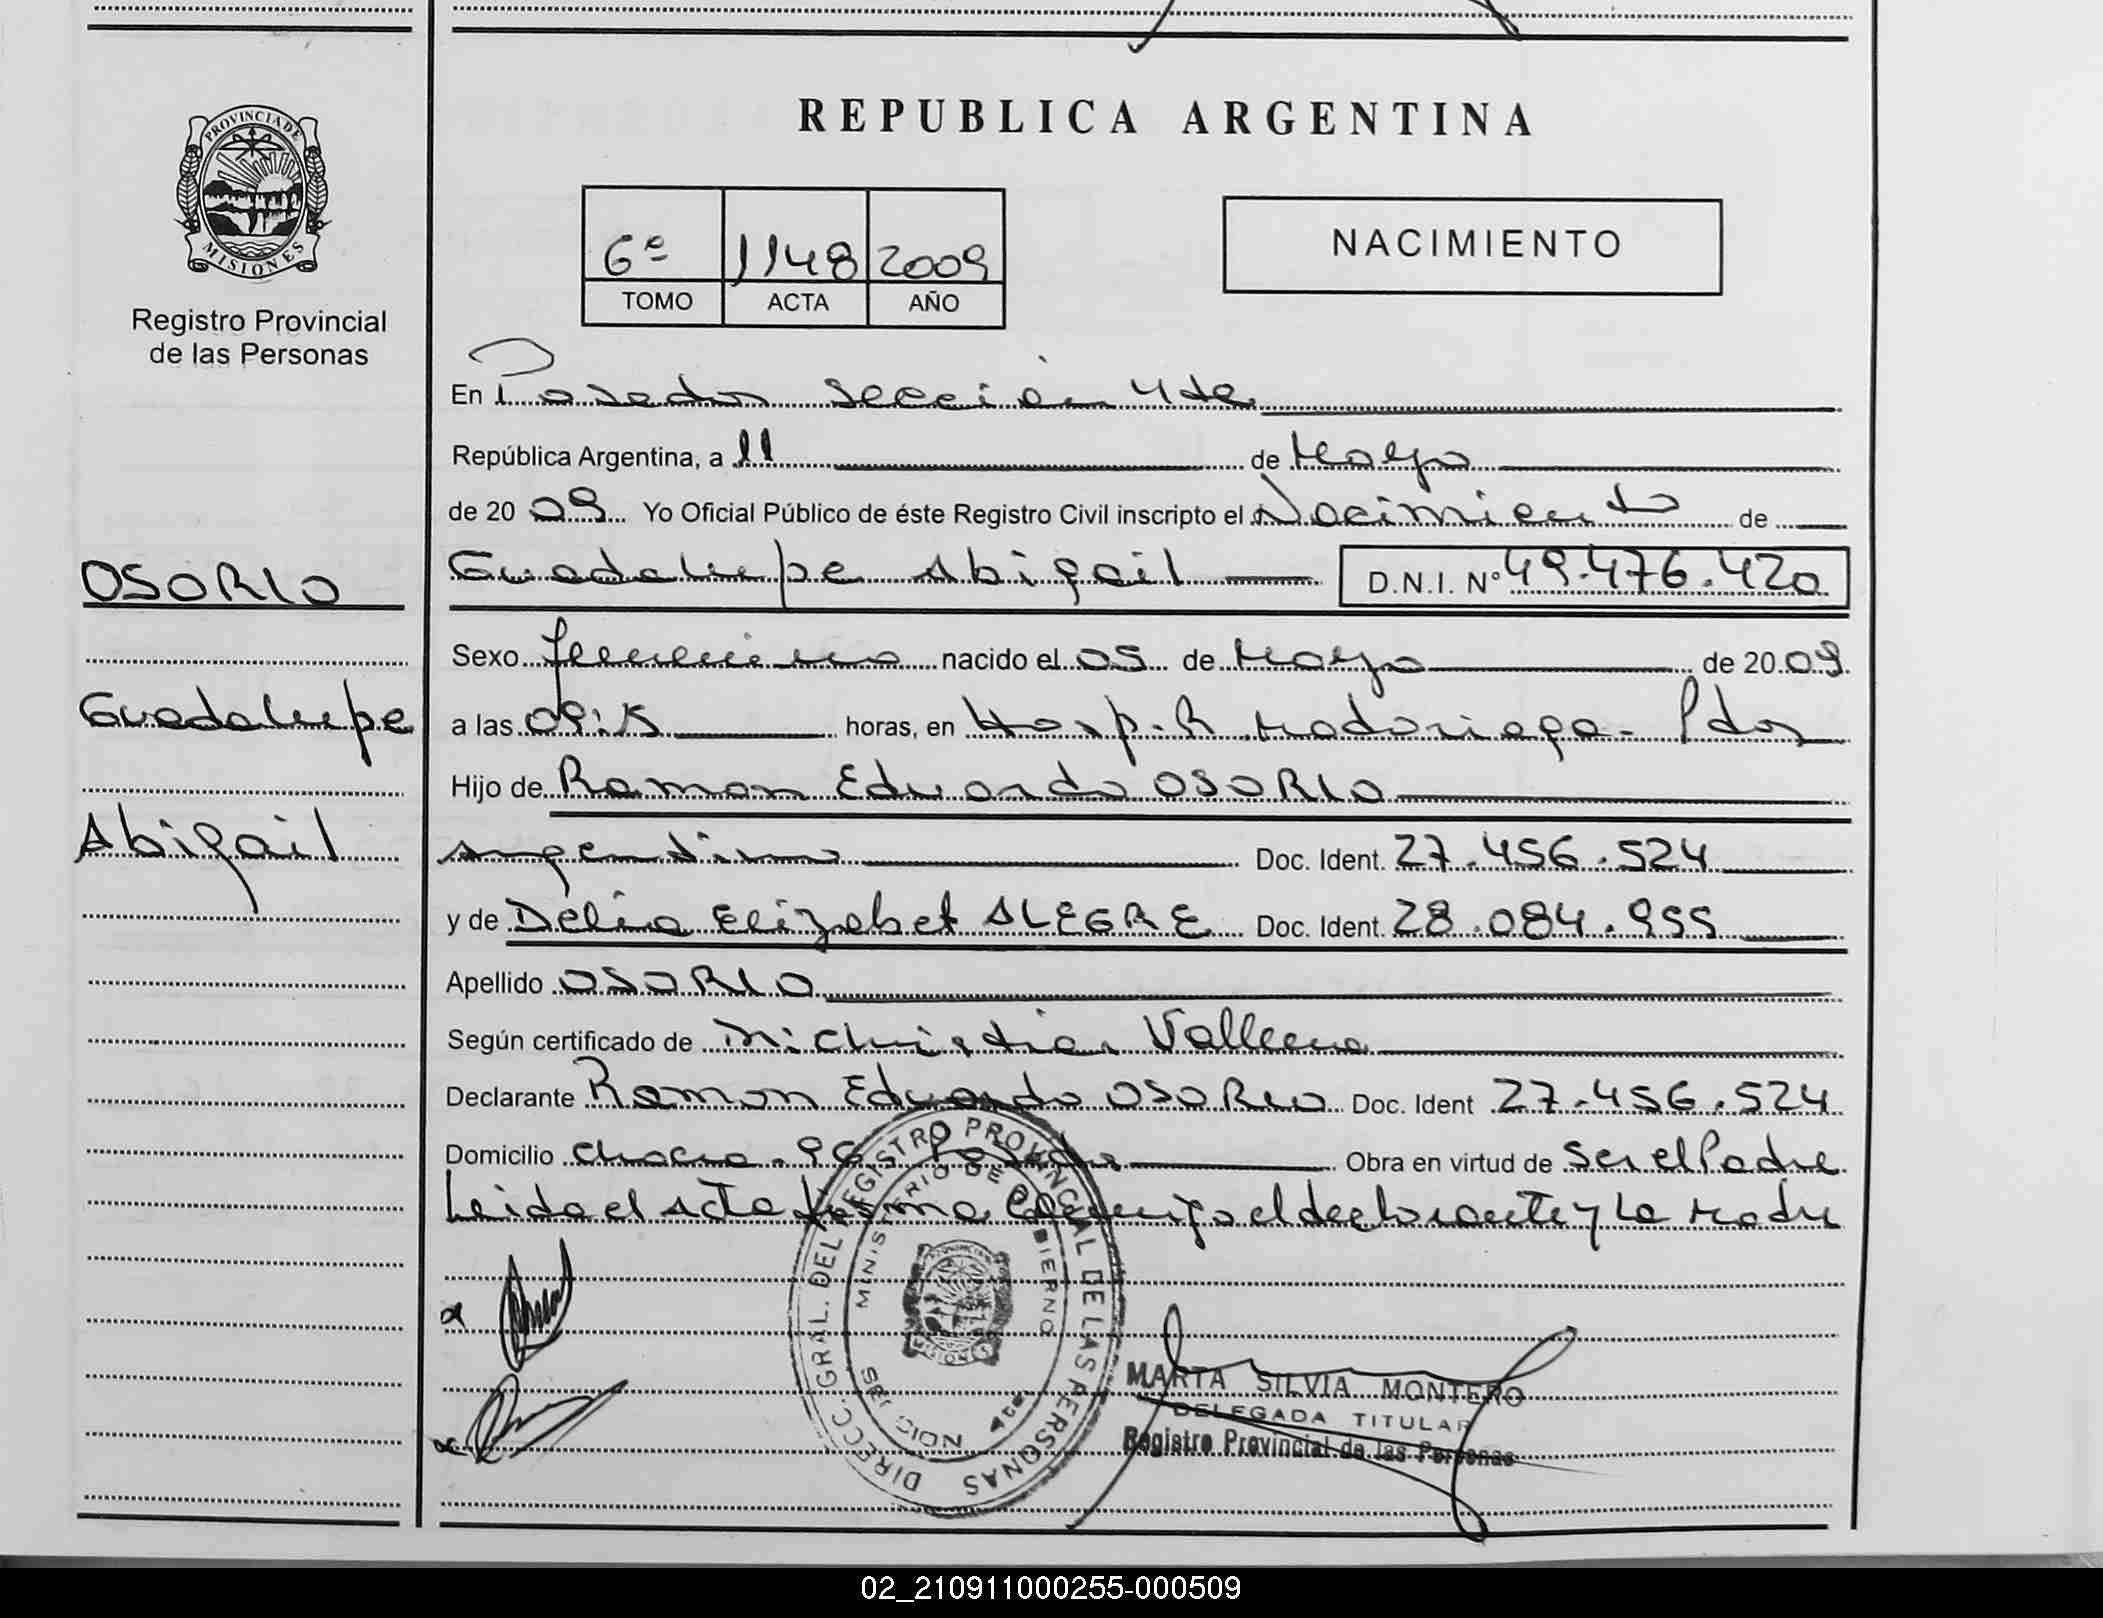 REPUBLICA ARGENTINA
PROVINCIA DE
MISIONES
Registro Provincial
de las Personas
NACIMIENTO
6º 1148 2009
TOMO ACTA AÑO
En Posadas Sección 4ta
República Argentina, a 11 de Mayo
de 20 09 Yo Oficial Público de éste Registro Civil inscripto el Nacimiento de
OSORIO
Guadalupe Abigail D.N.I. Nº 49.476.420
Sexo femenino nacido el 05 de Mayo de 20 09
Guadalupe
a las 09:15 horas, en Hosp. R Madariaga - Pdas
Hijo de Ramon Eduardo OSORIO
Abigail
argentino Doc. Ident. 27.456.524
y de Delia Elizabet ALEGRE Doc. Ident. 28.084.955
Apellido OSORIO
Según certificado de
Declarante Ramon Eduardo OSORIO Doc. Ident 27.456.524
Domicilio Posadas Obra en virtud de Ser el Padre
Leida el Acta firma conmigo el declarante y La Madre
DIRECC. GRAL. DEL REGISTRO PROVINCIAL DE LAS PERSONAS
MINISTERIO DE GOBIERNO
MISIONES
MARTA SILVIA MONTERO
DELEGADA TITULAR
Registro Provincial de las Personas
02_210911000255-000509